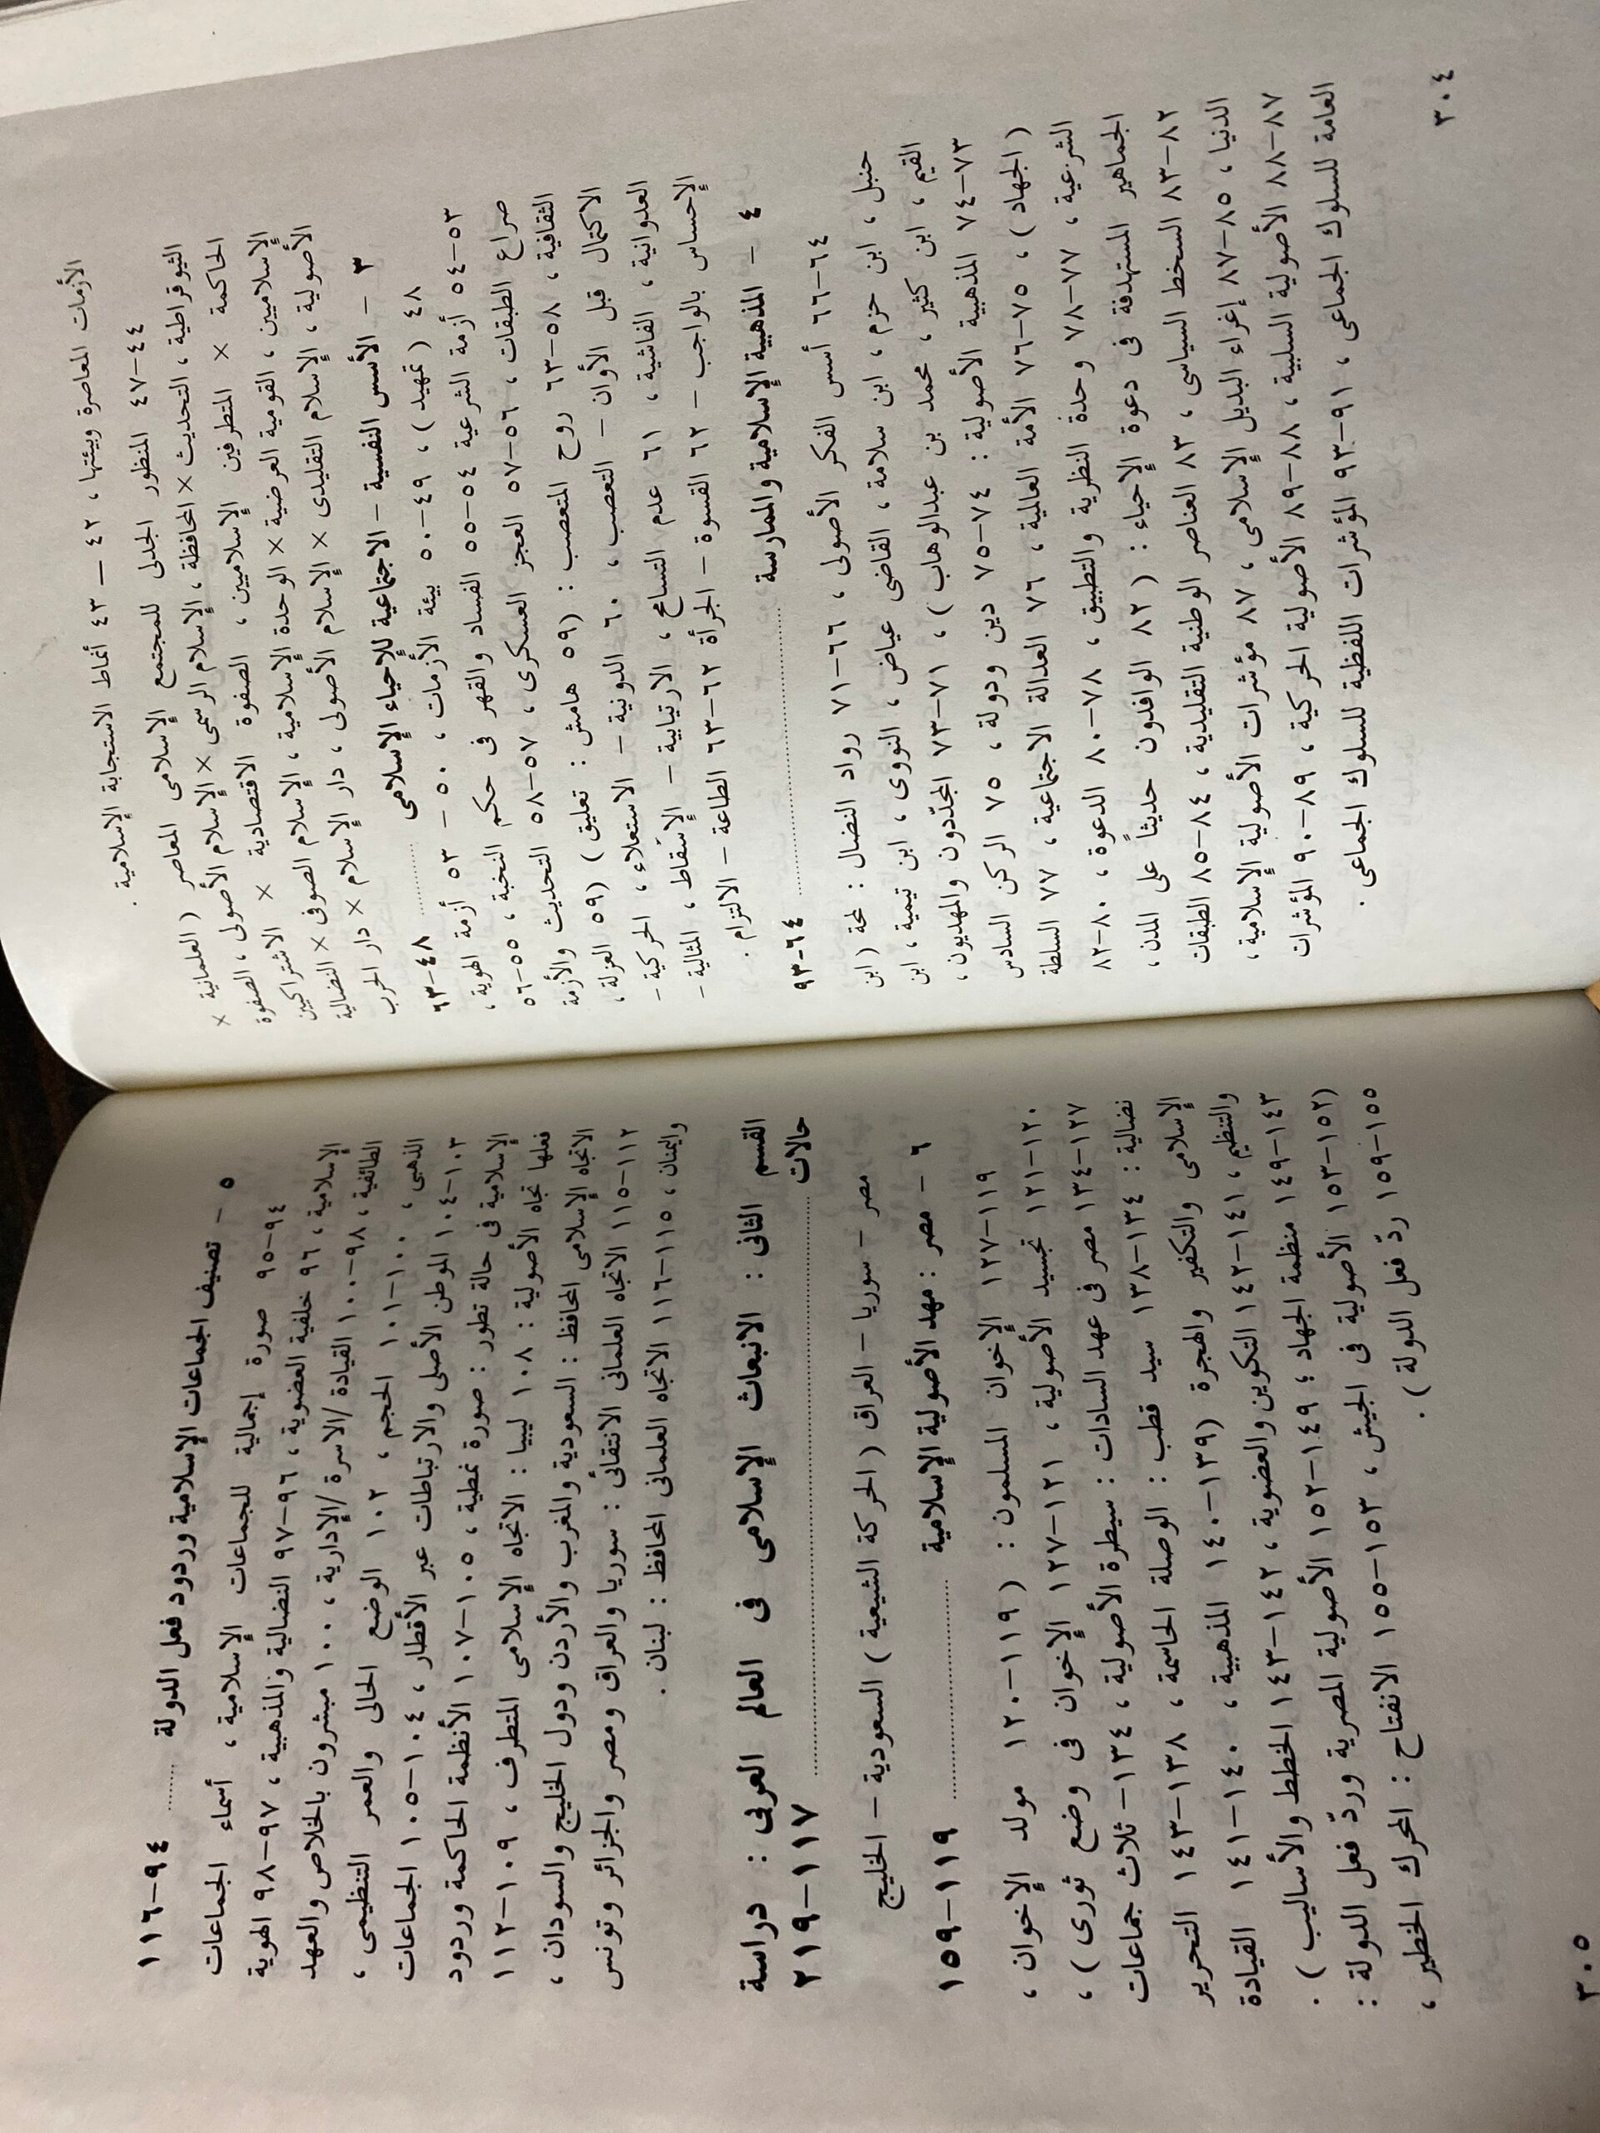 الأزمات المعاصرة وبيئتها ، ٤٢ – ٤٣ أنماط الاستجابة الإسلامية .
٤٤-٤٧ المنظور الجدلى للمجتمع الإسلامى المعاصر ( العلمانية ×
الثيوقراطية ، التحديث × المحافظة ، الإسلام الرسمى × الإسلام الأصولى ، الصفوة
الحاكمة × المتطرفين الإسلاميين ، الصفوة الاقتصادية × الاشتراكيين
الإسلاميين ، القومية العرضية × الوحدة الإسلامية ، الإسلام الصوفى × النضالية
الأصولية ، الإسلام التقليدى × الإسلام الأصولى ، دار الإسلام × دار الحرب
٣ – الأسس النفسية – الاجتماعية للإحياء الإسلامى .......... ٤٨-٦٣
٤٨ ( تمهيد ) ، ٤٩-٥٠ بيئة الأزمات ، ٥٠ – ٥٣ أزمة الهوية ،
٥٣-٥٤ أزمة الشرعية ٥٤-٥٥ الفساد والقهر فى حكم النخبة ، ٥٥-٥٦
صراع الطبقات ، ٥٦-٥٧ العجز العسكرى ، ٥٧-٥٨ التحديث والأزمة
الثقافية ، ٥٨-٦٣ روح المتعصب : ( ٥٩ هامش : تعليق ) ( ٥٩ العزلة ،
الاكتمال قبل الأوان – التعصب ، ٦٠ الدونية – الاستعلاء ، الحركية –
العدوانية ، الفاشية ، ٦١ عدم التسامح ، الارتيابية – الإسقاط ، المثالية –
الإحساس بالواجب – ٦٢ القسوة – الجرأة ٦٢-٦٣ الطاعة – الالتزام .
٤ – المذهبية الإسلامية والممارسة .......... ٦٤-٩٣
٦٤-٦٦ أسس الفكر الأصولى ، ٦٦-٧١ رواد النضال : لمحة ( ابن
حنبل ، ابن حزم ، ابن سلامة ، القاضى عياض ، النووى ، ابن تيمية ، ابن
القيم ، ابن كثير ، محمد بن عبدالوهاب ) ، ٧١-٧٣ المجدّدون والمهديون ،
٧٣-٧٤ المذهبية الأصولية : ٧٤-٧٥ دين ودولة ، ٧٥ الركن السادس
( الجهاد ) ، ٧٥-٧٦ الأمة العالمية ، ٧٦ العدالة الاجتماعية ، ٧٧ السلطة
الشرعية ، ٧٧-٧٨ وحدة النظرية والتطبيق ، ٧٨-٨٠ الدعوة ، ٨٠-٨٢
الجماهير المستهدفة فى دعوة الإحياء : ( ٨٢ الوافدون حديثاً على المدن ،
٨٢-٨٣ السخط السياسى ، ٨٣ العناصر الوطنية التقليدية ، ٨٤-٨٥ الطبقات
الدنيا ، ٨٥-٨٧ إغراء البديل الإسلامى ، ٨٧ مؤشرات الأصولية الإسلامية ،
٨٧-٨٨ الأصولية السلبية ، ٨٨-٨٩ الأصولية الحركية ، ٨٩-٩٠ المؤشرات
العامة للسلوك الجماعى ، ٩١-٩٣ المؤشرات اللفظية للسلوك الجماعى .
٣٠٤
٥ – تصنيف الجماعات الإسلامية وردود فعل الدولة ...... ٩٤-١١٦
٩٤-٩٥ صورة إجمالية للجماعات الإسلامية ، أسماء الجماعات
الإسلامية ، ٩٦ خلفية العضوية ، ٩٦-٩٧ النضالية والمذهبية ، ٩٧-٩٨ الهوية
الطائفية ، ٩٨-١٠٠ القيادة /الاسرة /الإدارية ، ١٠٠ مبشرون بالخلاص والعهد
الذهبى ، ١٠٠-١٠١ الحجم ، ١٠٢ الوضع الحالى والعمر التنظيمى ،
١٠٣-١٠٤ الموطن الأصلى والارتباطات عبر الأقطار ، ١٠٤-١٠٥ الجماعات
الإسلامية فى حالة تطور : صورة نمطية ، ١٠٥-١٠٧ الأنظمة الحاكمة وردود
فعلها تجاه الأصولية : ١٠٨ ليبيا : الاتجاه الإسلامى المتطرف ، ١٠٩-١١٢
الاتجاه الإسلامى المحافظ : السعودية والمغرب والأردن ودول الخليج والسودان ،
١١٢-١١٥ الاتجاه العلمانى الانتقائى : سوريا والعراق ومصر والجزائر وتونس
واليمنان ، ١١٥-١١٦ الاتجاه العلمانى المحافظ : لبنان .
القسم الثانى : الانبعاث الإسلامى فى العالم العربى : دراسة
حالات .......... ١١٧-٢١٩
مصر – سوريا – العراق ( الحركة الشيعية ) السعودية – الخليج
٦ – مصر : مهد الأصولية الإسلامية .......... ١١٩-١٥٩
١١٩-١٢٧ الإخوان المسلمون : ( ١١٩-١٢٠ مولد الإخوان ،
١٢٠-١٢١ تجسيد الأصولية ، ١٢١-١٢٧ الإخوان فى وضع ثورى ) ،
١٢٧-١٣٤ مصر فى عهد السادات : سيطرة الأصولية ، ١٣٤- ثلاث جماعات
نضالية : ١٣٤-١٣٨ سيد قطب : الوصلة الحاسمة ، ١٣٨-١٤٣ التحرير
الإسلامى والتكفير والهجرة ( ١٣٩-١٤٠ المذهبية ، ١٤٠-١٤١ القيادة
والتنظيم ، ١٤١-١٤٢ التكوين والعضوية ، ١٤٢-١٤٣ الخطط والأساليب ) .
١٤٣-١٤٩ منظمة الجهاد ؛ ١٤٩-١٥٢ الأصولية المصرية وردّ فعل الدولة :
( ١٥٢-١٥٣ الأصولية فى الجيش ، ١٥٣-١٥٥ الانفتاح : المحرك الخطير ،
١٥٥-١٥٩ ردّ فعل الدولة ) .
٣٠٥